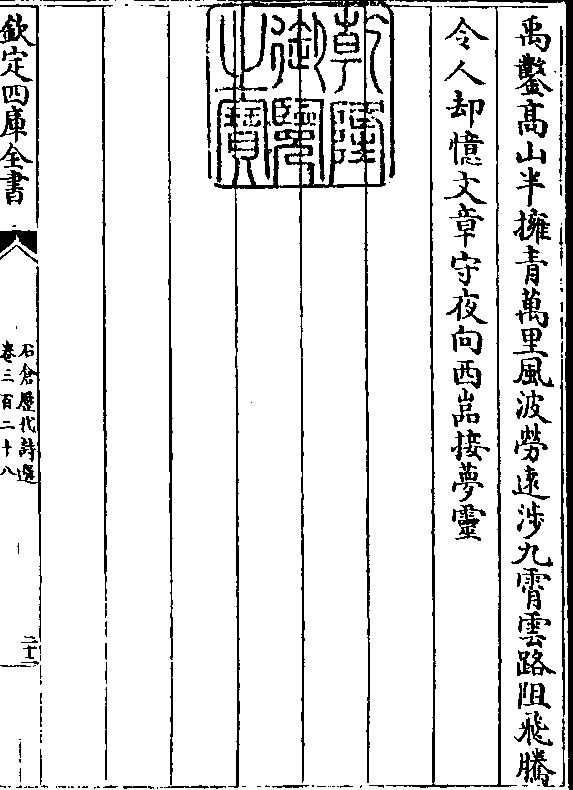 禹鑿髙山半擁青萬里風波勞遠涉九霄雲路阻飛騰
令人却憶文章守夜向西嵓接夢靈
乾隆
御覽
之寶
欽定四庫全書
石倉歷代詩選
卷三百二十八